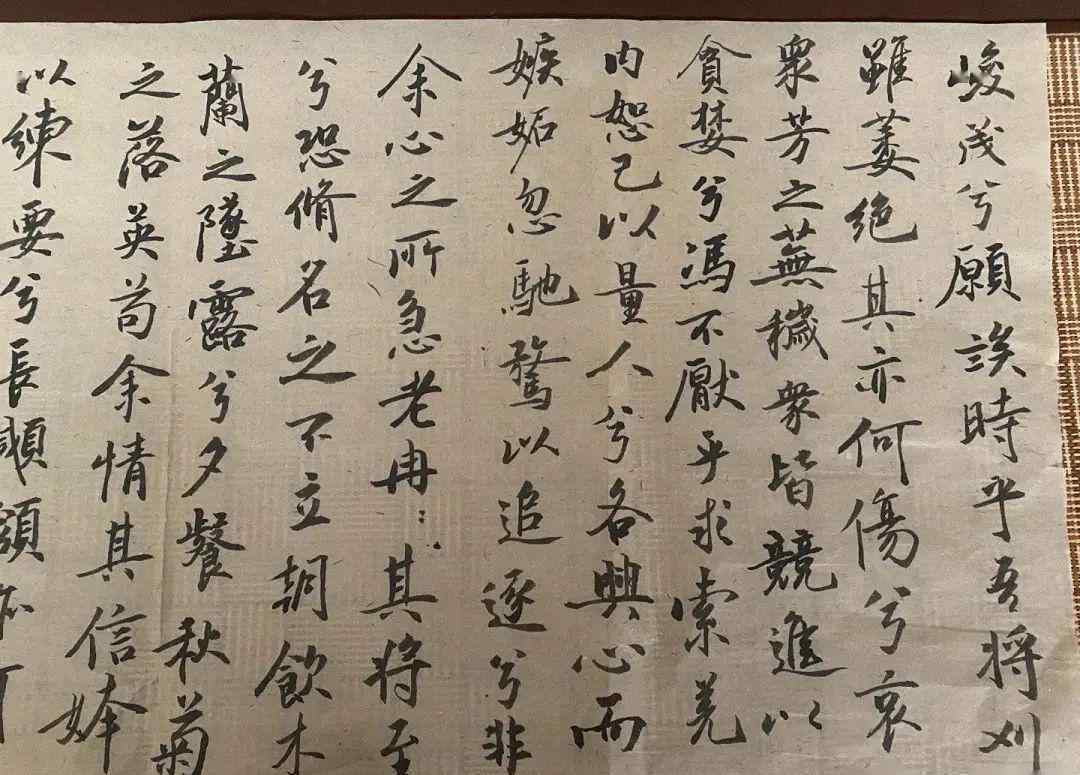 峻茂兮願竢時乎吾将刈
雖萎絶其亦何傷兮哀
衆芳之蕪穢衆皆競進以
貪婪兮馮不厭乎求索羌
内恕己以量人兮各興心而
嫉妬忽馳騖以追逐兮非
余心之所急老冉〻其将至
兮恐脩名之不立朝飲木
蘭之墜露兮夕餐秋菊
之落英苟余情其信姱
以練要兮長顑頷亦何